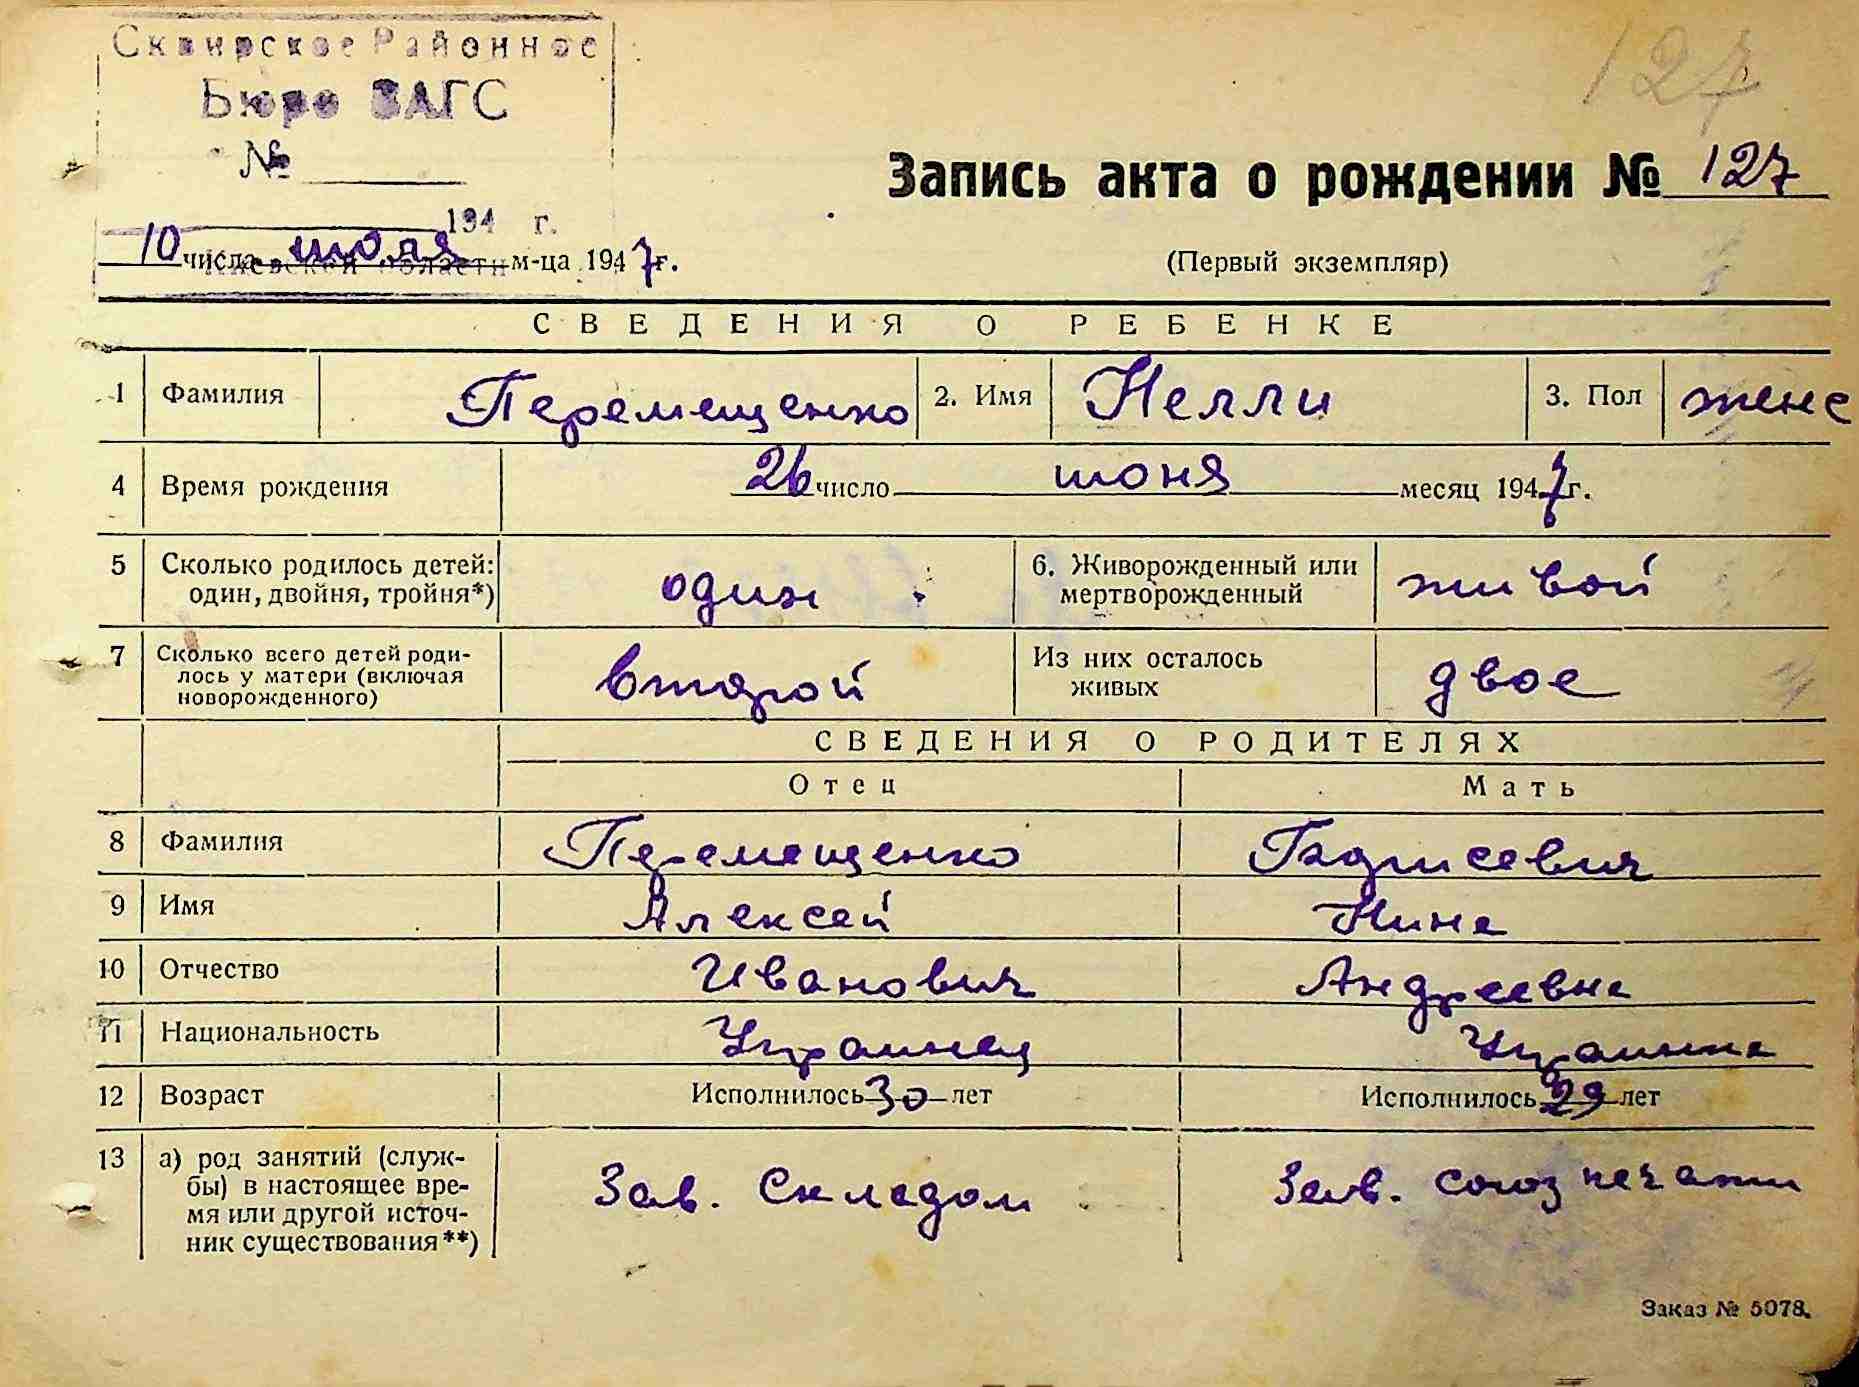 127
Сквирское Районное
Бюро ЗАГС
№
194 г.
Киевской области
Запись акта о рождении № 127
10 числа июля м-ца 1947 г.
(Первый экземпляр)
СВЕДЕНИЯ О РЕБЕНКЕ
1 Фамилия Перемещенко 2. Имя Нелли 3. Пол женс
4 Время рождения 26 число июня месяц 1947 г.
5 Сколько родилось детей: один, двойня, тройня*) один 6. Живорожденный или мертворожденный живой
7 Сколько всего детей роди-
лось у матери (включая
новорожденного) второй Из них осталось живых двое
СВЕДЕНИЯ О РОДИТЕЛЯХ
Отец Мать
8 Фамилия Перемещенко
9 Имя Алексей Нина
10 Отчество Иванович Андреевна
11 Национальность Украинец Украинка
12 Возраст Исполнилось 30 лет Исполнилось 29 лет
13 а) род занятий (служ-
бы) в настоящее вре-
мя или другой источ-
ник существования**) Зав. Складом Зав. союзпечати
Заказ № 5078.